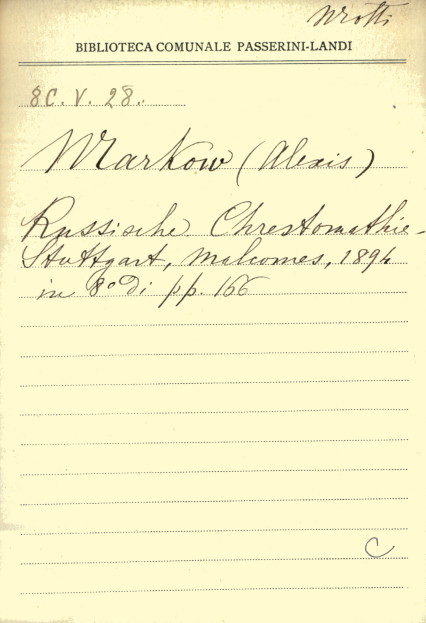 BIBLIOTECA COMUNALE PASSERINI-LANDI
8C. V. 28.
Markow (Alexis)
Russische Chrestomathie-
Stuttgart, Malcomes, 1894
in 8° di pp. 166
C